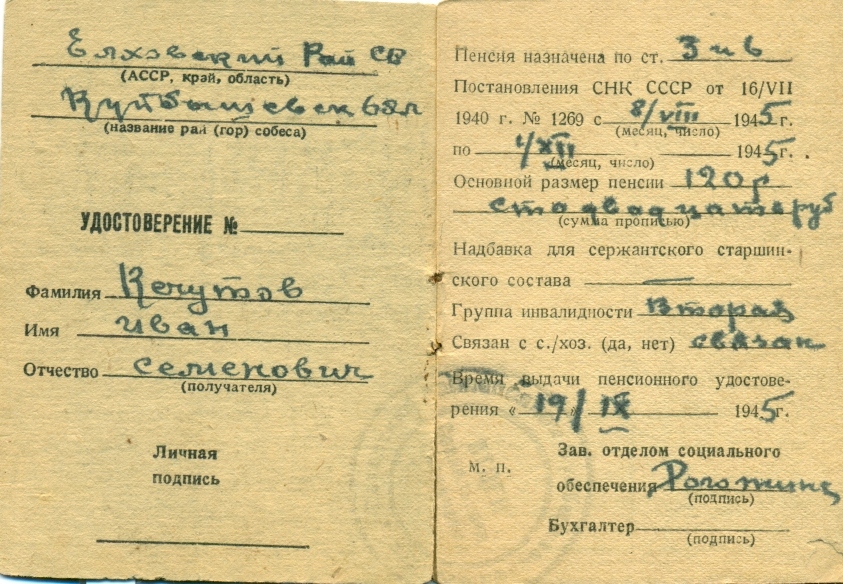 Елховский Рай СО
(АССР, край, область)
Куйбышевск обл
(название рай (гор) собеса)
УДОСТОВЕРЕНИЕ №
Фамилия Кечутов
Имя Иван
Отчество Семенович
(получателя)
Личная
подпись
Пенсия назначена по ст. 3 и 6
Постановления СНК СССР от 16/VII
1940 г. № 1269 с 8/VIII 1945г.
(месяц, число)
по 1/XII 1945г.
(месяц, число)
Основной размер пенсии 120 р
сто двадцать руб
(сумма прописью)
Надбавка для сержантского старшин-
ского состава —
Группа инвалидности Вторая
Связан с с./хоз. (да, нет) связан
Время выдачи пенсионного удостове-
рения « 19/ » IX 1945г.
Зав. отделом социального
М. П.
обеспечения
(подпись)
Бухгалтер
(подпись)